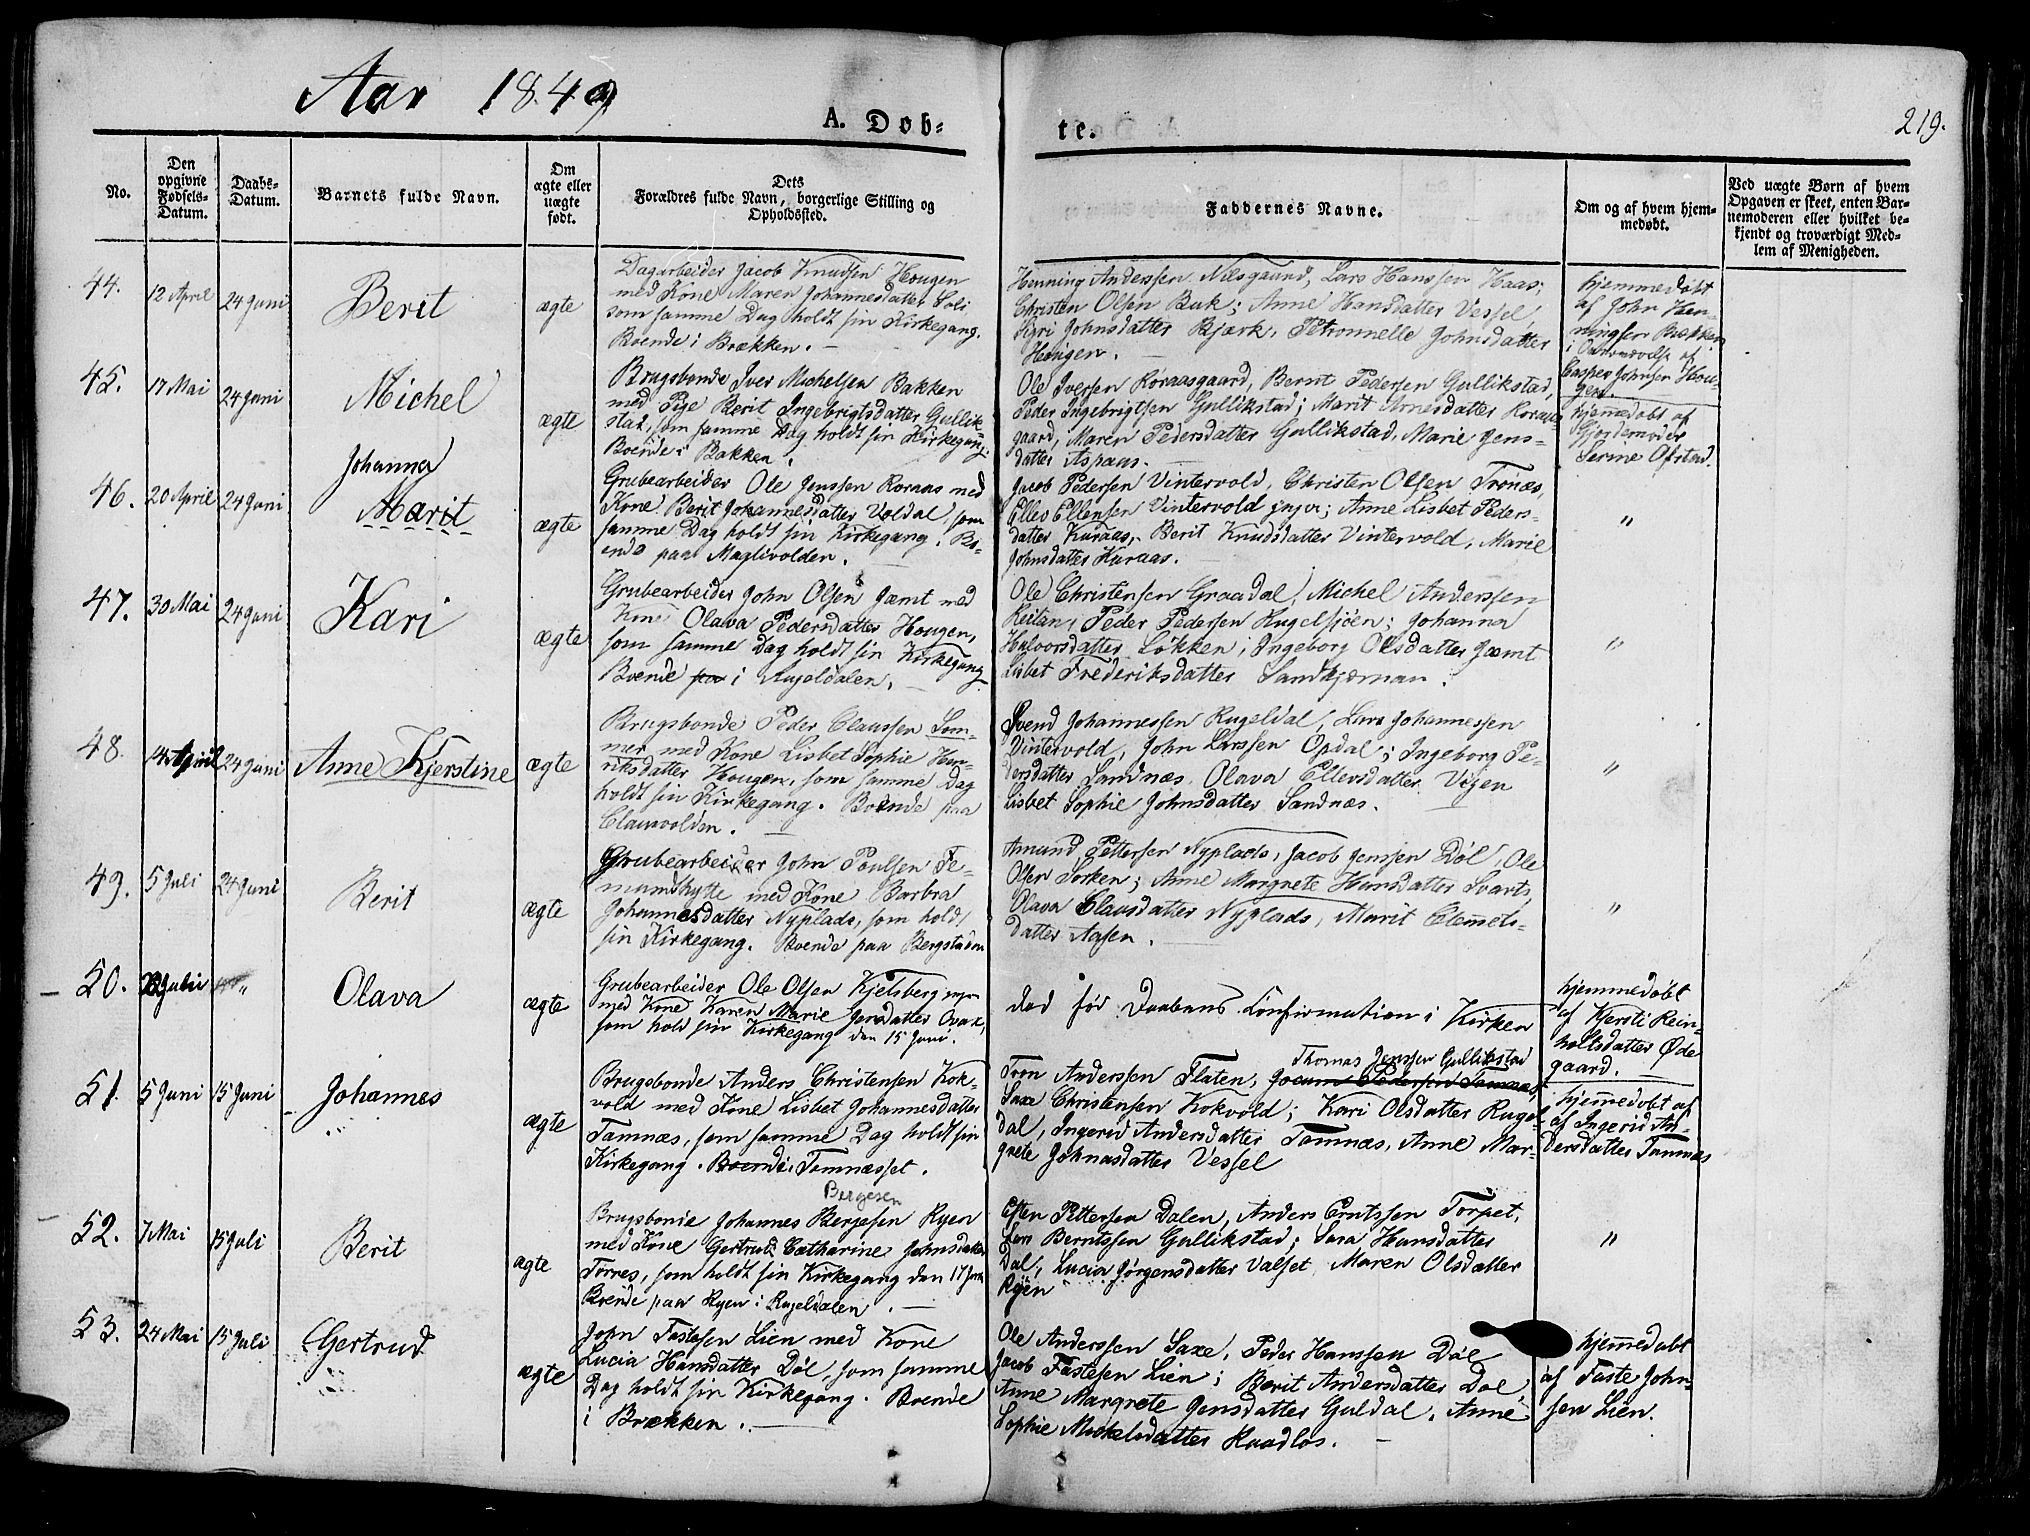 Aar 1849
A. Døb-
te.
219.
No.
Den opgivne Fødsels-Datum.
Daabs-Datum.
Barnets fulde Navn.
Om ægte eller uægte født.
Dets
Forældres fulde Navn, borgerlige Stilling og
Opholdssted.
Faddernes Navne.
Om og af hvem hjem-
medøbt.
Ved uægte Børn af hvem
Opgaven er skeet, enten Bar-
nemoderen eller hvilket be-
kjendt og troværdigt Med-
lem af Menigheden.
44.
12 April
24 Juni
Berit
ægte
Dagarbeider Jacob Knudsen Hougen
med Kone Maren Johannesdatter Soli
som samme Dag holdt sin Kirkegang.
Boende i Brækken.
Henning Anderssen Nilsgaard, Lars Hanssen Haas;
Christen Olsen Buk; Anne Hansdatter Vessel,
Siri Johnsdatter Bjørk, Petronnelle Johnsdatter
Hougen.
hjemmedøbt
af John Hen-
ningsen Brækken
i Overværelse af
Casper Johnsen Hou-
gen.
45.
17 Mai
24 Juni
Michel
ægte
Brugsbonde Iver Michelsen Bakken
med Pige Berit Ingebrigtsdatter Gullik-
stad, som samme Dag holdt sin Kirkegang.
Boende i Bakken.
Ole Iversen Røraasgaard, Bernt Pedersen Gullikstad,
Peder Ingebrigtsen Gullikstad; Marit Arnesdatter Røraas-
gaard, Maren Pedersdatter Gullikstad, Marie Jens-
datter Aspaas.
hjemmedøbt af
Gjordemoder
Serine Ofstad.
46.
20 April
24 Juni
Johanna
Marit
ægte
Grubearbeider Ole Jenssen Koraas med
Kone Berit Johannesdatter Voldal, som
samme Dag holdt sin Kirkegang. Bo-
ende paa Maglivolden.
Jacob Pedersen Vintervold, Christen Olsen Tronæs,
Ellev Ellensen Vintervold yngre; Anne Lisbet Peders-
datter Kuraas, Berit Knudsdatter Vintervold, Marie
Johnsdatter Kuraas.
"
47.
30 Mai
24 Juni
Kari
ægte
Grubearbeider John Olsen Jæmt med
Kone Olava Pedersdatter Hougen,
som samme Dag holdt sin Kirkegang
Boende paa i Rugeldalen.
Ole Christensen Graadal, Michel Anderssen
Reitan, Peder Pedersen Rugelsjøen; Johanna
Halvorsdatter Løkken; Ingeborg Olsdatter Jæmt
Lisbet Frederiksdatter Sandkjernan.
"
48.
14 April
24 Juni
Anne Kjerstine
ægte
Brugsbonde Peder Claussen Som-
mer med Kone Lisbet Sophie Hen-
riksdatter Hougen, som samme Dag
holdt sin Kirkegang. Boende paa
Clausvolden.
Svend Johannessen Rugeldal, Lars Johannessen
Vintervold, John Larssen Opdal; Ingeborg Pe-
dersdatter Sandnæs, Olava Ellevsdatter Vigen
Lisbet Sophie Johnsdatter Sandnæs.
"
49.
5 Juli
24 Juni
Berit
ægte
Grubearbeider John Poulsen Fe-
mundhytte med Kone Barbra
Johannesdatter Nyplads, som hold
sin Kirkegang. Boende paa Bergstaden
Amund Pettersen Nyplads, Jacob Jenssen Døl, Ole
Olsen Torken; Anne Margrete Hansdatter Svart,
Olava Clausdatter Nyplads, Marit Clemets-
datter Aasen.
"
50.
Juli
"
Olava
ægte
Grubearbeider Ole Olsen Kjelsberg
med Kone Karen Marie Jensdatter
som hold sin Kirkegang den 15 Juni.
død før Daabens Confirmation i Kirken
hjemmedøbt
af Kjersti Rein-
holtsdatter Øde
gaard.
51.
5 Juni
15 Juni
Johannes
ægte
Brugsbonde Anders Christensen Kok-
vold med Kone Lisbet Johannesdatter
Tamnæs, som samme Dag holdt sin
Kirkegang. Boende i Tamnæsset.
Thomas Jenssen Gullikstad
Tron Anderssen Flaten, Jocum Pedersen Tamnæs,
Saxe Christensen Kokvold; Kari Olsdatter Rugel-
dal, Ingerid Andersdatter Tamnæs, Anne Mar-
grete Johnasdatter Vessel
hjemmedøbt af
af Ingerid An-
dersdatter Tamnæs
52.
7 Mai
15 Juli
Berit
ægte
Bergesen
Brugsbonde Johannes Bergesen Ryen
med Kone Gertrud Catharine Johnsdatter
Torres, som holdt sin Kirkegang den 17 Juni
Boende paa Ryen i Rugeldalen.
Esten Pettersen Dalen, Anders Erntssen Torpet,
Berntssen Gullikstad; Sara Hansdatter
Dal, Lucia Jørgensdatter Valset, Maren Olsdatter
Ryen
"
53.
24 Mai
15 Juli
Gertrud
ægte
John Fastesen Lien med Kone
Lucia Hansdatter Døl, som samme
Dag holdt sin Kirkegang. Boende
i Brækken.
Ole Anderssen Saxe, Peder Hanssen Døl
Jacob Fastesen Lien; Berit Andersdatter Døl,
Anne Margrete Jensdatter Guldal, Anne
Sophie Mickelsdatter Haadløs.
hjemmedøbt
af Faste John-
sen Lien.